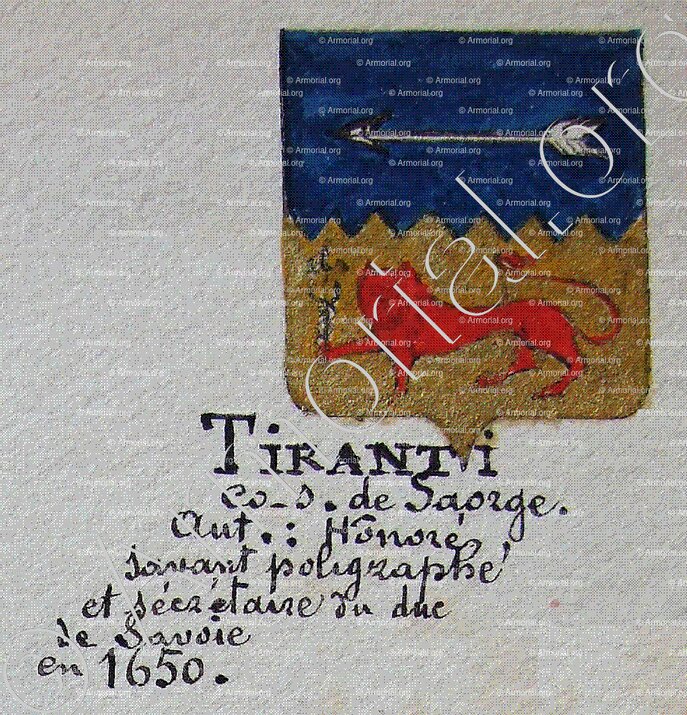 TIRANTI
Co-S. de Saorge.
Aut. : Honoré,
savant poligraphe
et sécrétaire du duc
de Savoie
en 1650.
© Armorial.org
Armorial.org